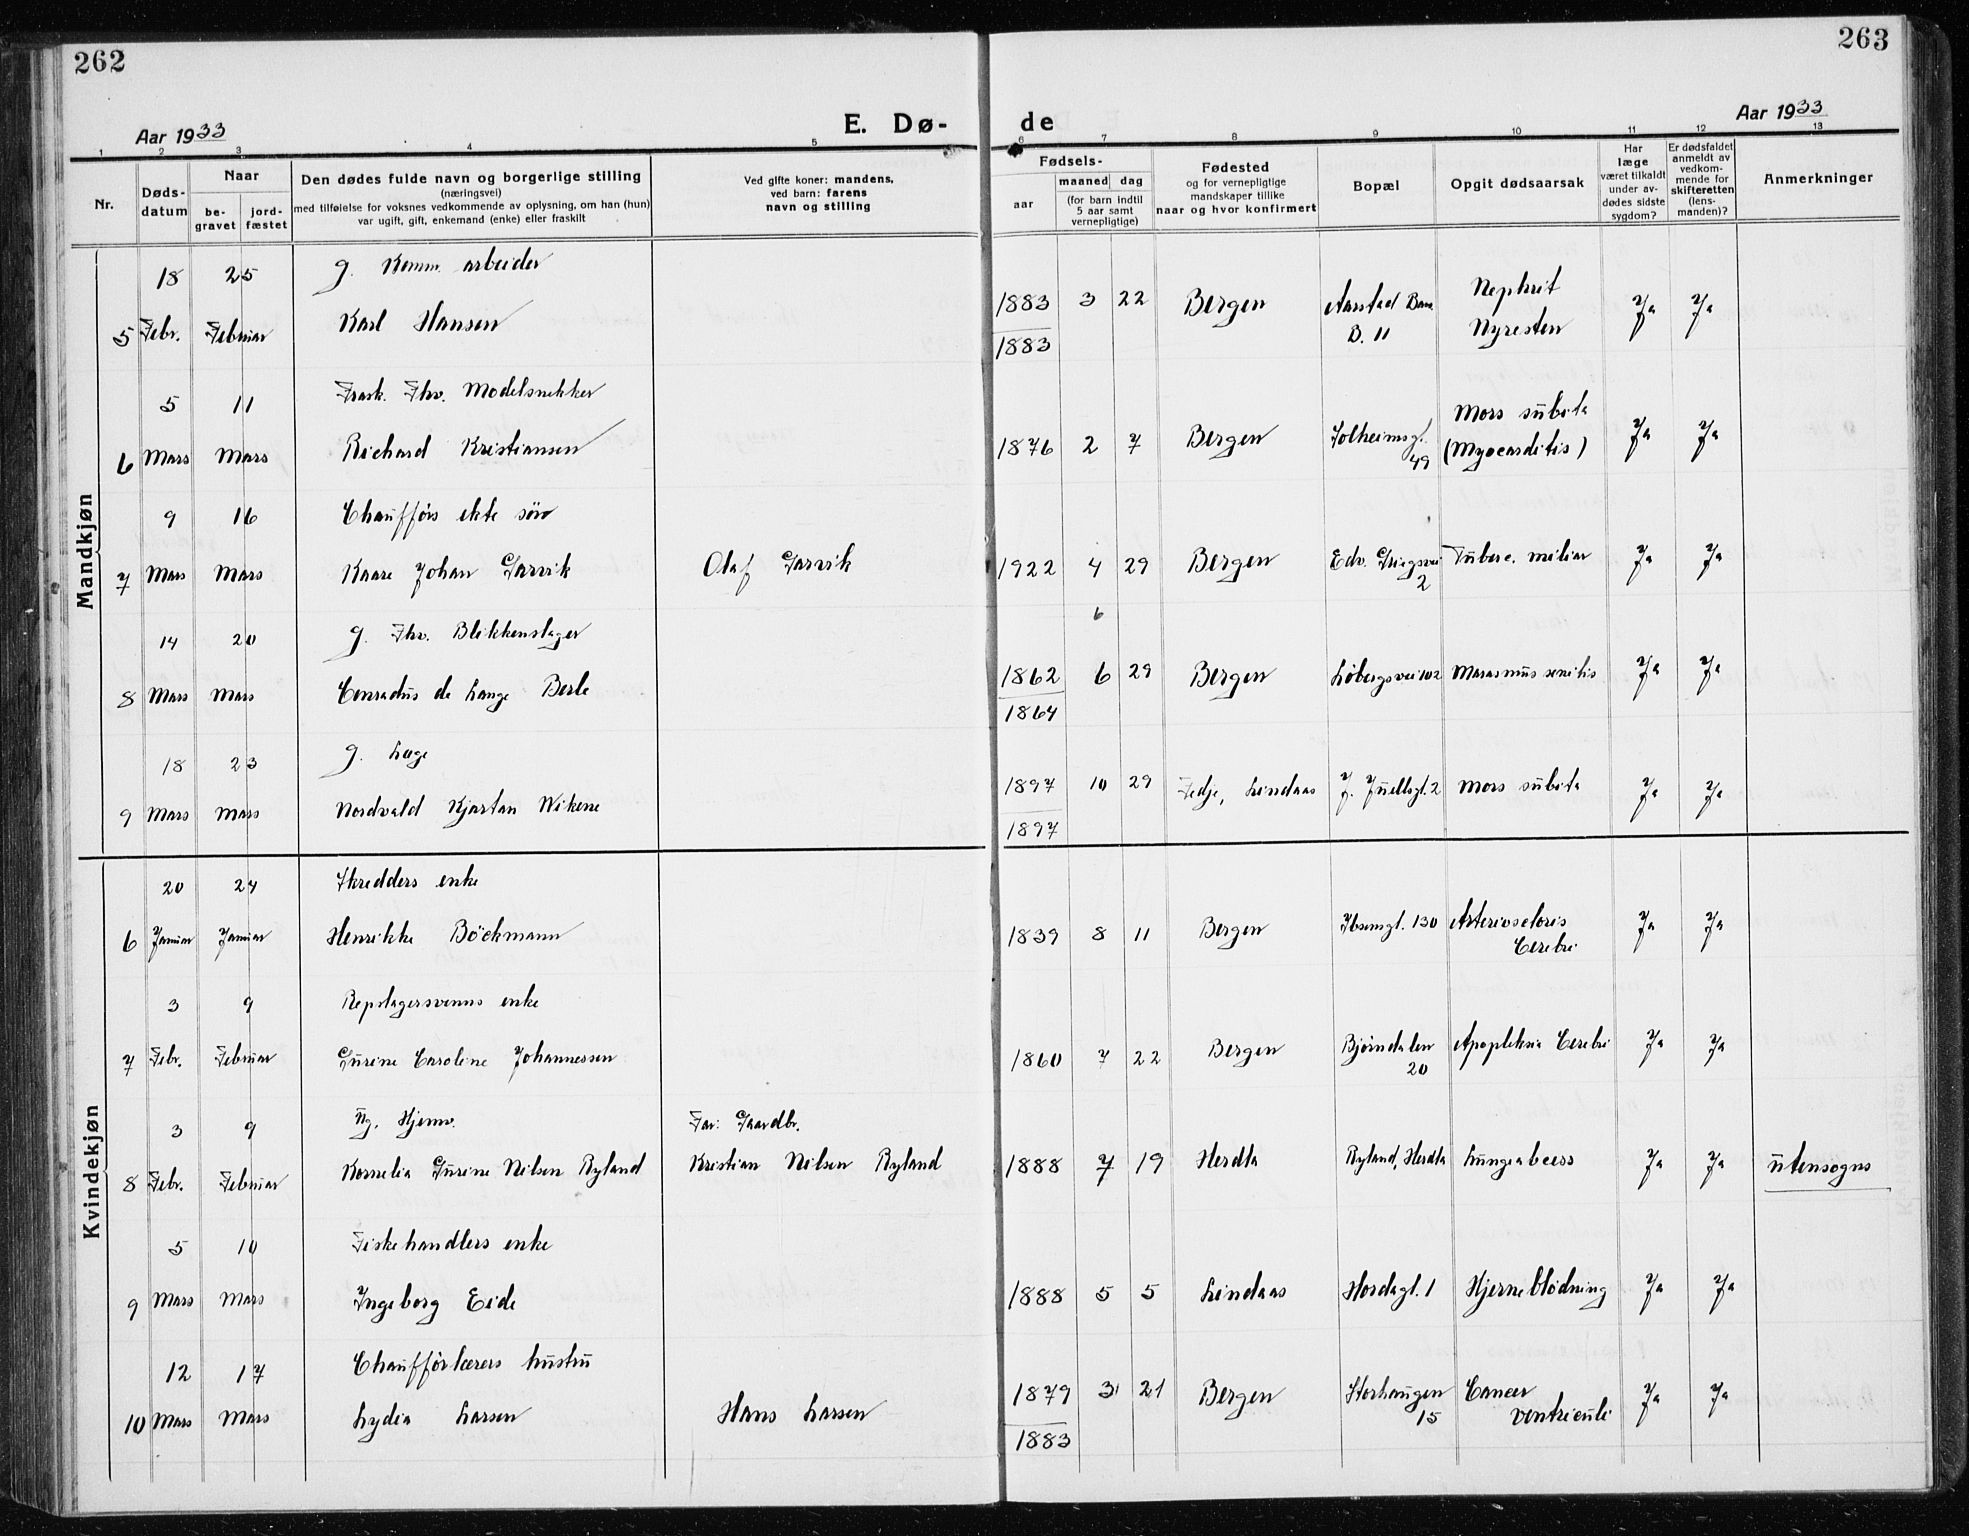 262
263
Aar 1933
E. Dø-
de
Aar 1933
1 2 3 4 5 6 7 8 9 10 11 12 13
Nr.
Døds-
datum
Naar
be-
gravet
jord-
fæstet
Den dødes fulde navn og borgerlige stilling
(næringsvei)
med tilføielse for voksnes vedkommende av oplysning, om han (hun)
var ugift, gift, enkemand (enke) eller fraskilt
Ved gifte koner: mandens,
ved barn: farens
navn og stilling
Fødsels-
aar
maaned dag
(for barn indtil
5 aar samt
vernepligtige)
Fødested
og for vernepligtige
mandskaper tillike
naar og hvor konfirmert
Bopæl
Opgit dødsaarsak
Har
læge
været tilkaldt
under av-
dødes sidste
sygdom?
Er dødsfaldet
anmeldt av
vedkom-
mende for
skifteretten
(lens-
manden)?
Anmerkninger
Mandkjøn
18 25 g. Komm. arbeider
5 Febr. Februar Karl Hansen
1883 3 22 Bergen Aarstad Bane
B. 11
Nephrit
Nyresten
Ja Ja
1883
5 11 Frask. Fhv. Modelsnekker
6 Mars Mars Richard Kristiansen
1876 2 7 Bergen Solheimsgt.
49
Mors subita
(Myocarditis)
Ja Ja
9 16 Chaufførs ekte sønn
7 Mars Mars Kaare Johan Garvik Olaf Garvik
1922 4 29 Bergen Edv. Griegsvei
2
Tuberc. miliar Ja Ja
6
14 20 g. Fhv. Blikkenslager
8 Mars Mars Conradus de Lange Berle
1862 6 29 Bergen Løbergsvei 102 Marasmus senilis Ja Ja
1864
18 23 g. Læge
9 Mars Mars Nordvald Kjartan Wikene
1897 10 29 Fedje, Lindaas J. Juellsgt. 2 Mors subita Ja Ja
1897
Kvindekjøn
20 24 Skredders enke
6 Januar Januar Henrikke Böckmann
1839 8 11 Bergen Ibsensgt. 130 Arterioscloris
Cerebri
Ja Ja
3 9 Repslagersvenns enke
7 Febr. Februar Gurine Caroline Johannessen
1860 7 22 Bergen Bjørndalen
20
Apopleksia Cerebri Ja Ja
3 9 Ug. Hjemv. Far: Gaardbr.
8 Febr. Februar Kornelia Gurine Nilsen Ryland Kristian Nilsen Ryland
1888 7 19 Herdla Ryland, Herdla Lungeabcess Ja Ja utensogns
5 10 Fiskehandlers enke
9 Mars Mars Ingeborg Eide
1888 5 5 Lindaas Hordagt. 1 Hjerneblødning Ja Ja
12 17 Chaufførlærers hustru
10 Mars Mars Lydia Larsen Hans Larsen
1879 3 21 Bergen Storhaugen
15
Cancer
ventriculi
Ja Ja
1883